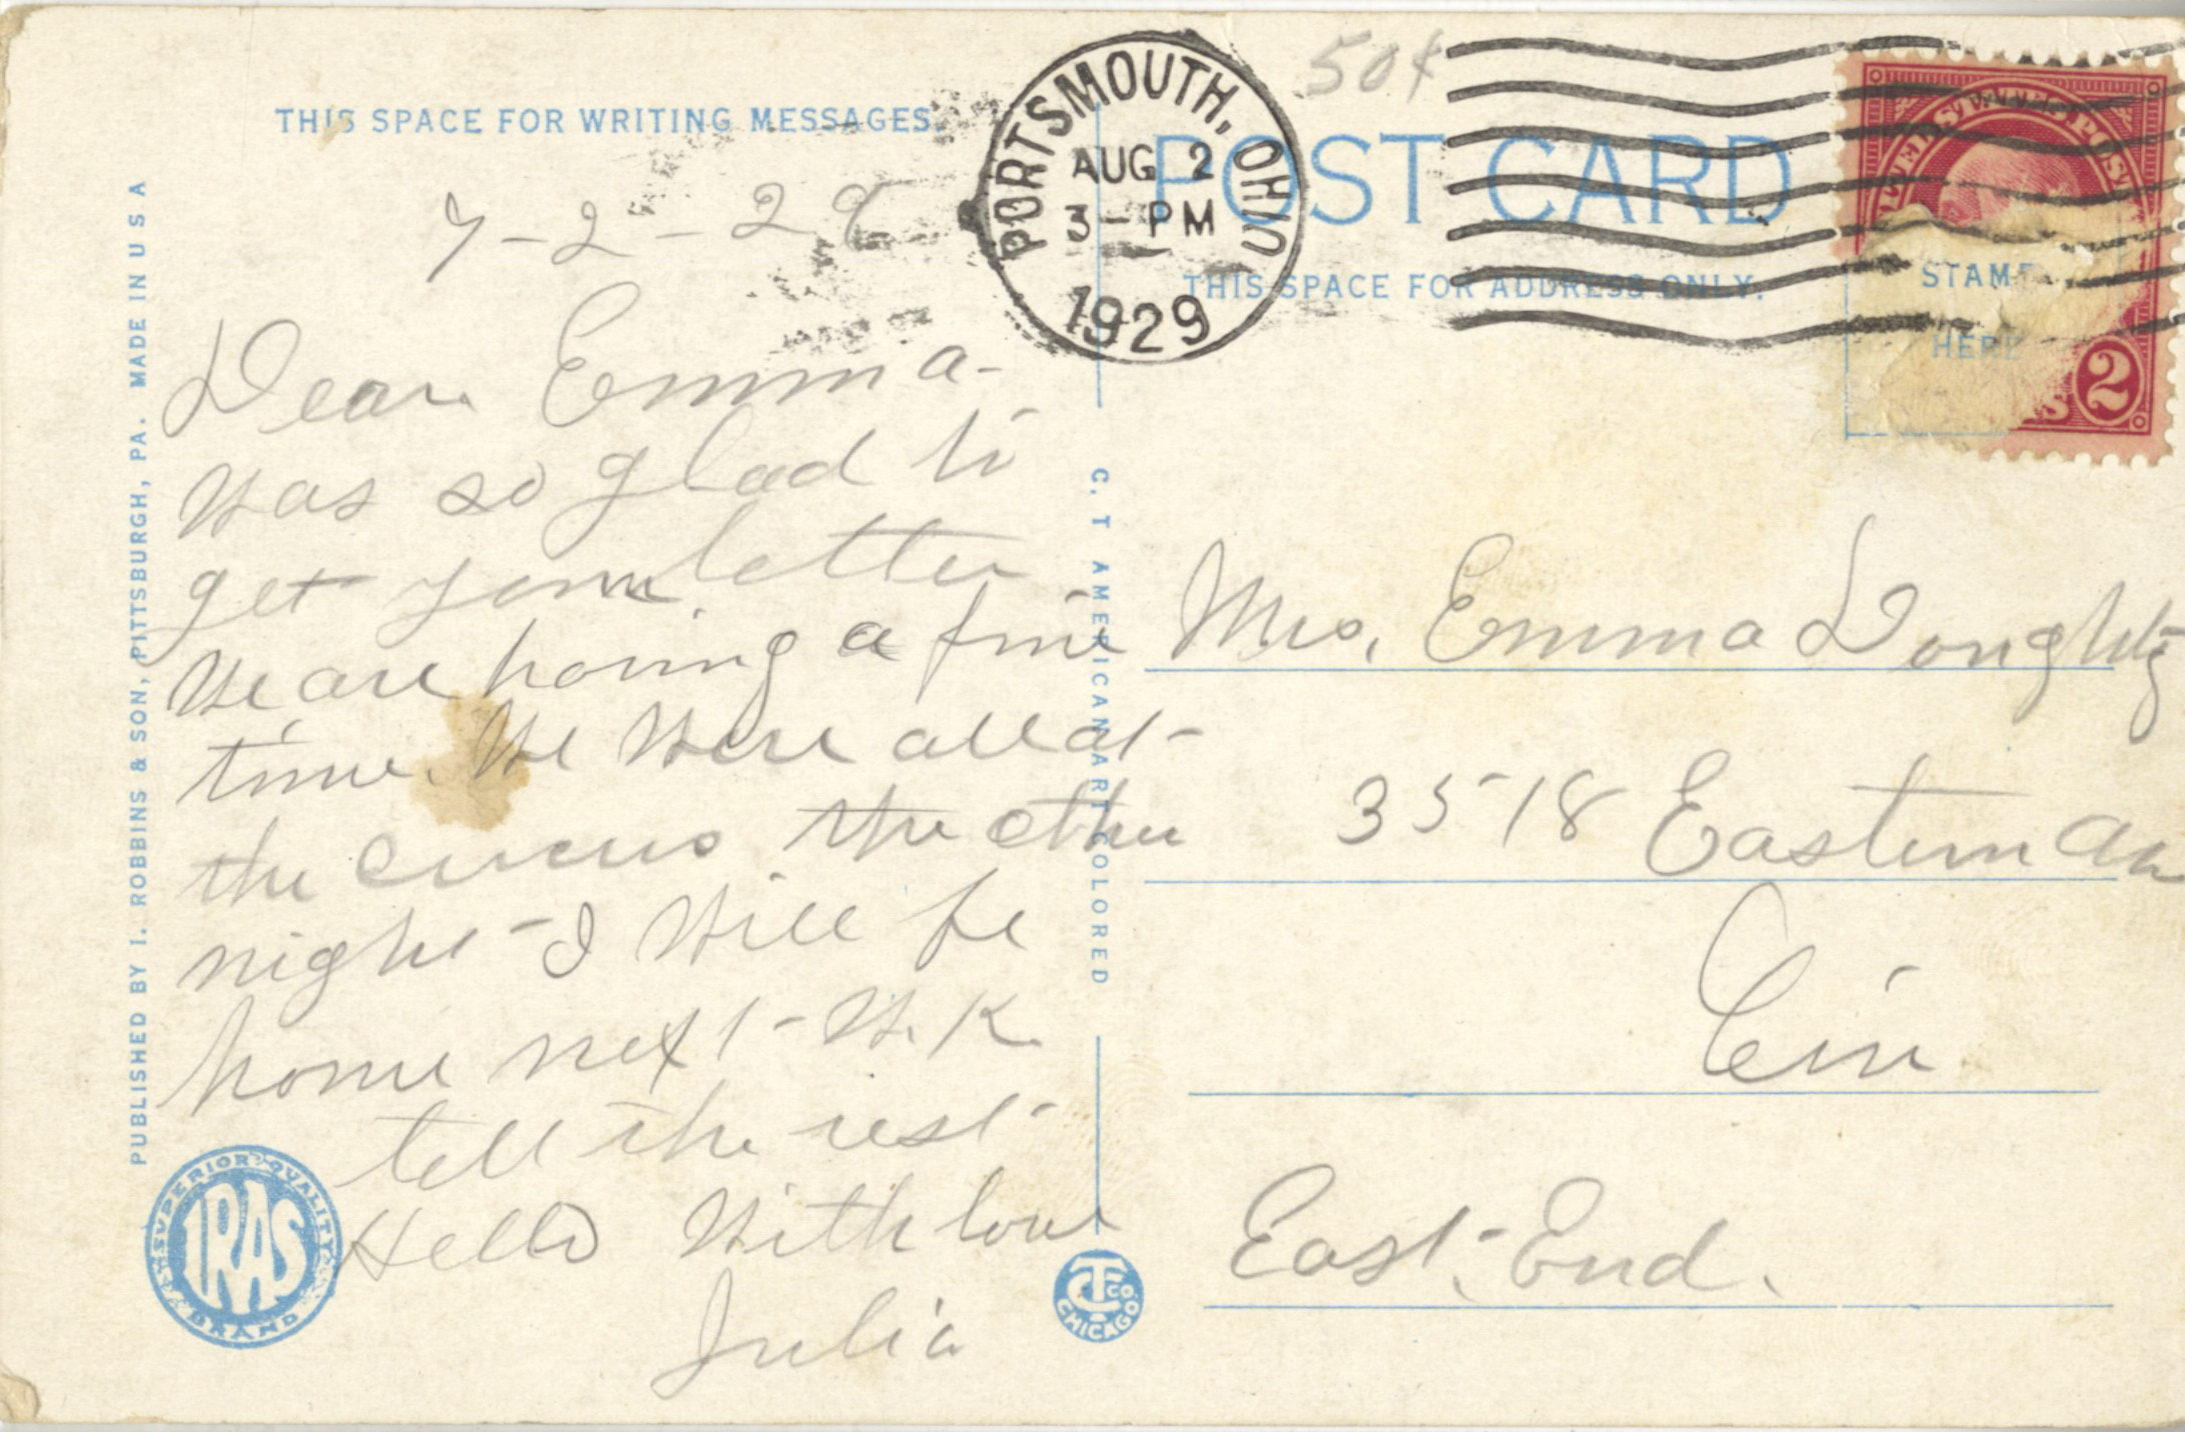 THIS SPACE FOR WRITING MESSAGES.
7-2-29
Dear Emma-
Was so glad to
get your letter
We are having a fine
time. We were all at
the circus the other
night - I will be
home next - W.K.
tell the rest
Hello With love
Julia
PUBLISHED BY I. ROBBINS & SON, PITTSBURGH, PA. MADE IN U S A
SUPERIOR QUALITY
IRAS
BRAND
C. T. AMERICAN ART COLORED
CT CO.
CHICAGO
PORTSMOUTH, OHIO
AUG 2
3 - PM
1929
50¢
POST CARD
THIS SPACE FOR ADDRESS ONLY.
STAMP
HERE
2
Mrs. Emma Doughty
3518 Eastern Av
Cin
East. End.